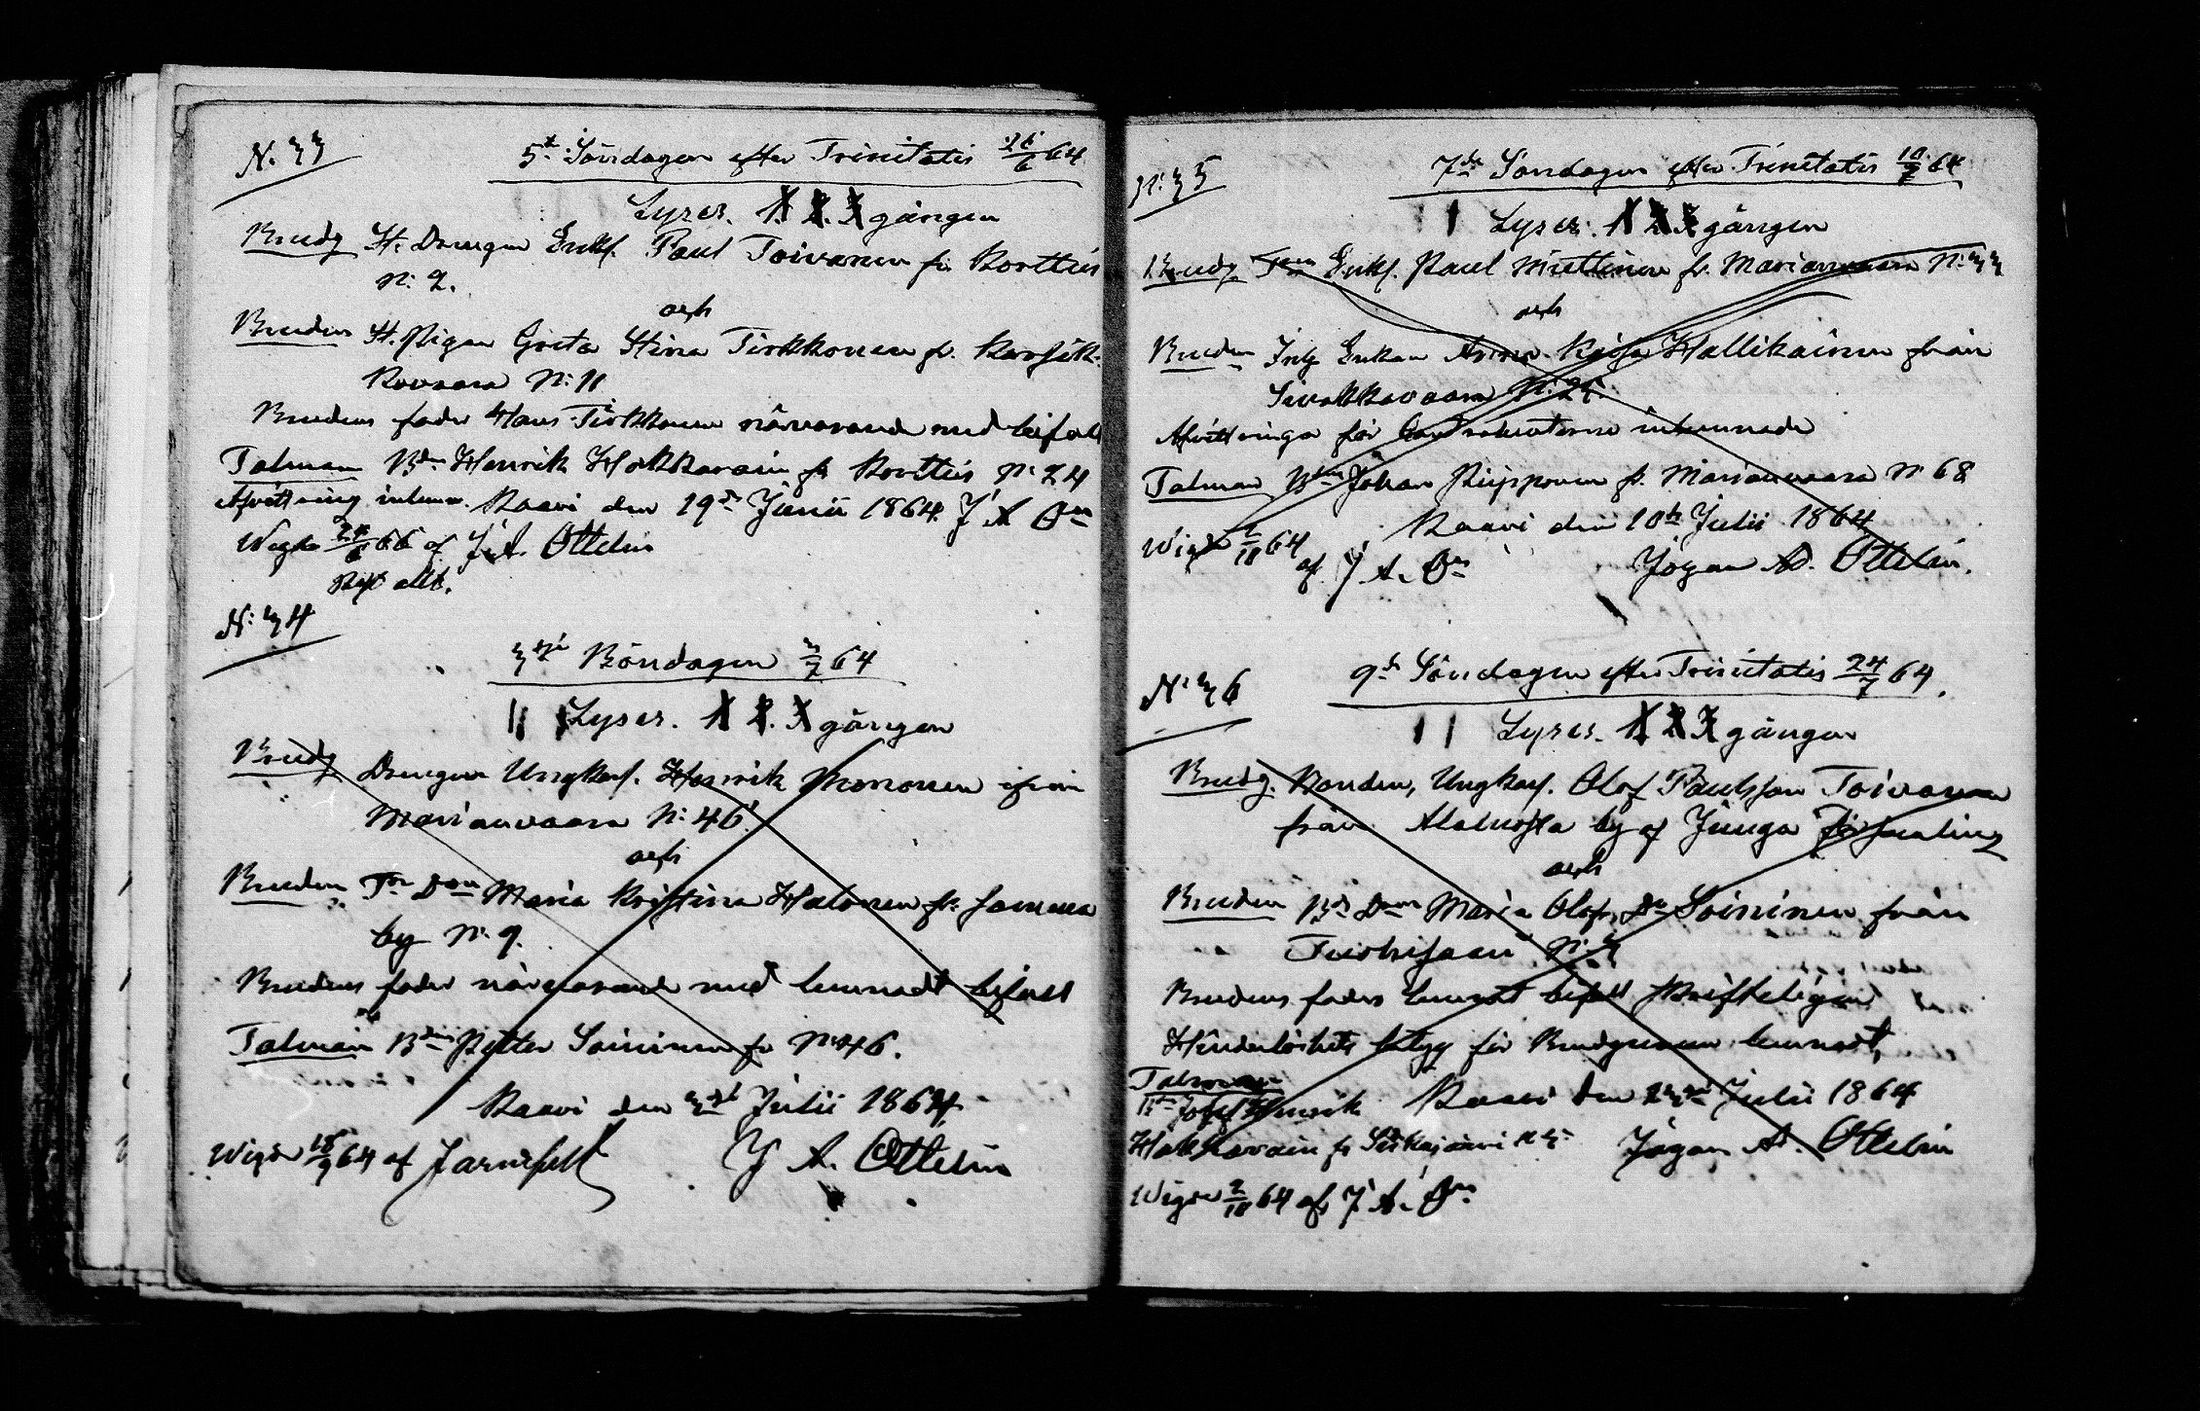 N. 33
5te Söndagen efter Trinitatis 26/6 64
Lyses. 1. 2. 3 gången
Brudg St. Drengen Enkl. Paul Toivanen fr. Korttes
N: 2.
och
Bruden St. Pigan Greta Stina Tirkkonen fr.
N: 11
Brudens fader Hans Tirkkonen närvarande med bifall
Talman Bdn Henrik Hakkarain fr Korttes N: 24
Afvittring inlemn. Kaavi den 19de Junii 1864. J A On
Wigde 24/6 66 af J. A. Ottelin
N: 34
3dje Böndagen 3/7 64
Lyses. 1 2. 3 gången
Brudg Drengen Ungkarl. Henrik Mononen ifrån
Marianvaara N: 46
och
Bruden Tr Don Maria Kristina Halonen fr.
by N. 9.
Brudens fader närvarande med lemnadt bifall
Talman Bdn Petter Soininen fr N: 46.
Kaavi den 3dje Julii 1864
Wigde 18/9 64 af Jarnefelt J A. Ottelin
N: 35
7de Söndagen efter Trinitatis 10/7 64
Lyses. 1 2 3 gången
Brudg Enkl. Paul Miettinen fr. Marianvaara N: 33
och
Bruden Enkan Anna Kaisa Hallikainen från
Sivakkavaara N: 25.
Afvittringa för inlemnade
Talman Bdn Johan Piipponen fr. Marianvaara N 68
Kaavi den 10de Julii 1864
Wigde 2/10 64 af J. A. On Jögan Ad. Ottelin.
N: 36
9de Söndagen efter Trinitatis 24/7 64.
Lyses. 1 2 3 gången
Brudg. Bonden, Ungkarl. Olof Paulsson Toivanen
från Alaluosta by af Juuga församling
och
Bruden Bd Don Maria Olofs Dr Soininen från
N: 3
Brudens faders lemnat bifall skrifteligen
Hinderlöshets betyg för Brudgummen lemnadt,
Talman
Bdn Josef Henrik Kaavi den 23de Julii 1864
Hakkarain fr Siikajärvi N 3. Jögan Ad. Ottelin
Wigde 2/10 64 af J. A. On